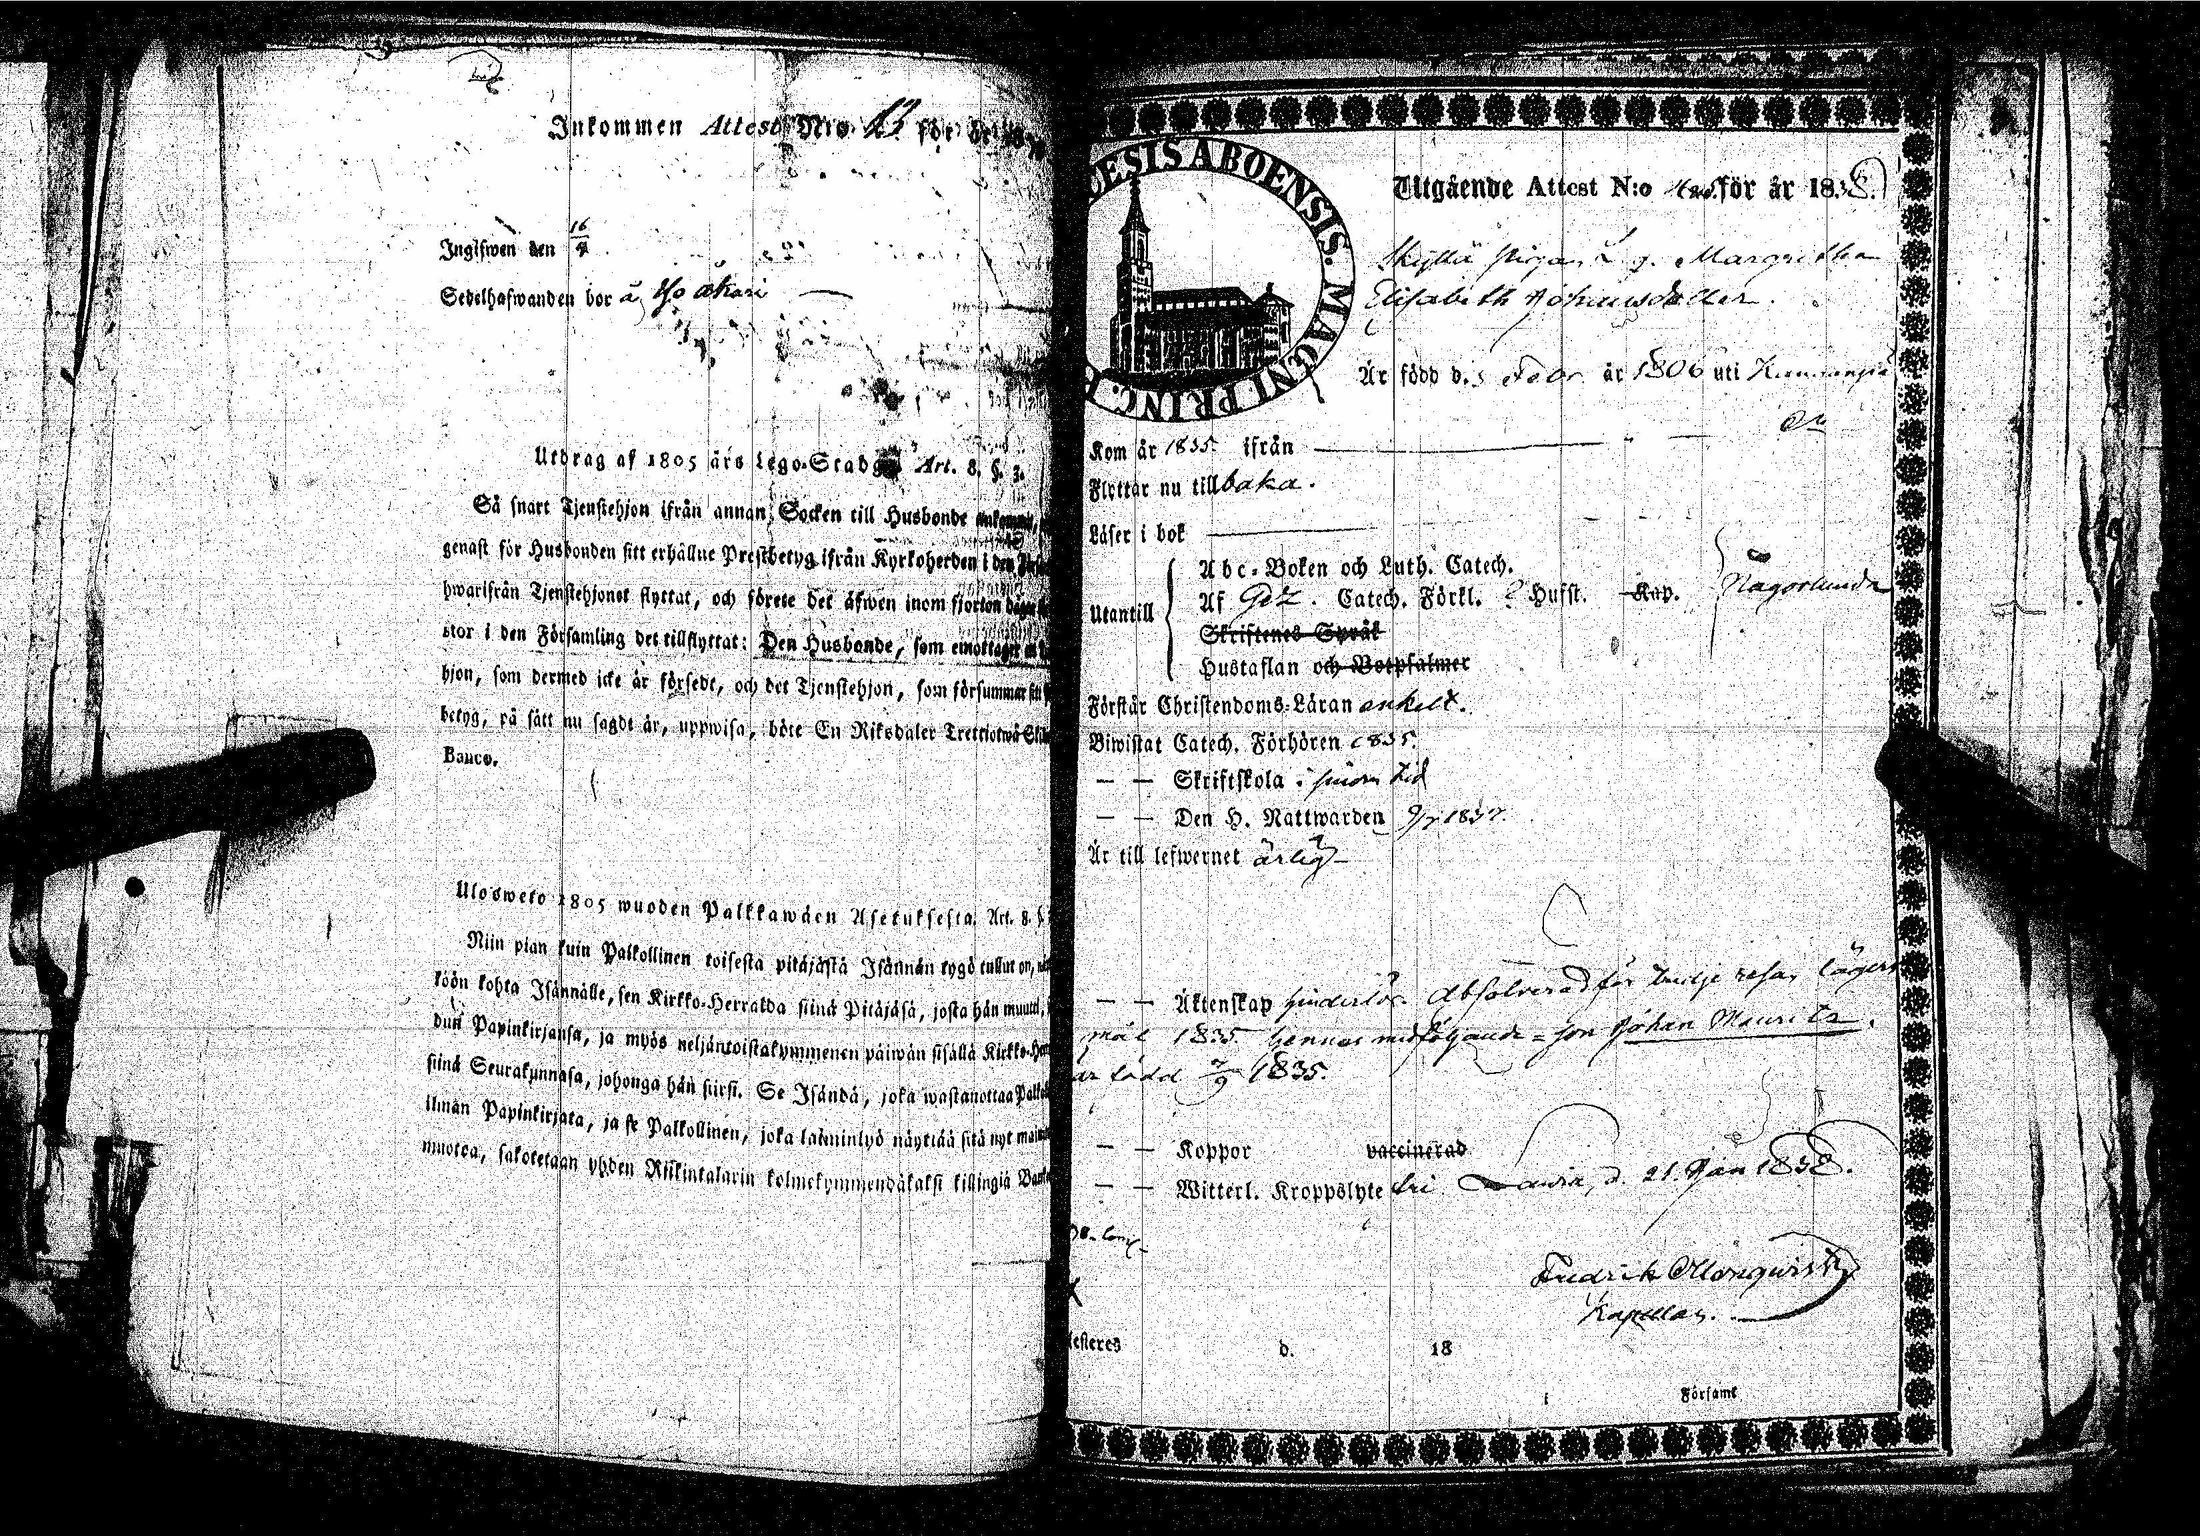 Inkommen Attest N:o 13 för år 18
Ingifwen den 16/4
Sedelhafwanden bor å
Utdrag af 1805 års Lego-Stadga Art. 8. §. 3.
Så snart Tjenstehjon ifrån annan Socken till Husbonde ankommit,
genast för Husbonden sitt erhållne Prestbetyg ifrån Kyrkoherden i den
hwarifrån Tjenstehjonet flyttat, och förete det äfwen inom fjorton dagar
stor i den Församling det tillflyttat: Den Husbonde, som emottager
hjon, som dermed icke är försedt, och det Tjenstehjon, som försummar sitt
betyg, på sätt nu sagdt är, uppwisa, böte En Riksdaler Trettiotwå
Banco.
Ulosweto 1805 wuoden Palkkawäen Asetuksesta. Art. 8. §.
Niin pian kuin Palkollinen toisesta pitäjästä Isännän tygö tullut on,
köön kohta Isännälle, sen Kirkko-Herralda siinä Pitäjäsä, josta hän muutti,
dun Papinkirjansa, ja myös neljäntoistakymmenen päiwän sisällä
siinä Seurakunnasa, johonga hän siirsi. Se Isändä, joka wastanottaa
ilman Papinkirjata, ja se Palkollinen, joka laiminlyö näyttää sitä nyt
muotoa, sakotetaan yhden Riikintalarin kolmekymmendäkaksi killingiä
ECCLESIS ABOENSIS. MAGNI PRINC. F
Utgående Attest N:o för år 1838.
Pigan Margretha
Elisabeth Johansdotter.
Är född d. Febr. år 1806 uti
Kom år 1835. ifrån
Flyttar nu tillbaka.
Läser i bok
Abc-Boken och Luth. Catech.
Utantill Af Catech. Förkl. Hufst. Kap. Någorlunda
Skriftenes Språk
Hustaflan och Botpsalmer
Förstår Christendoms-Läran enkelt.
Biwistat Catech. Förhören 1835.
— — Skriftskola i sinom tid
— — Den H. Nattwarden 1837.
Är till lefwernet ärlig
— — Äktenskap hinderlös. Absolverad för tredje resan lägers
mål 1835. hennes medföljande son Johan Mauritz
är född 1835.
— — Koppor vaccinerad
— — Witterl. Kroppslyte fri d. 21. Jan 1838.
Fredrik
Kapellan.
testeres d. 18
Församl